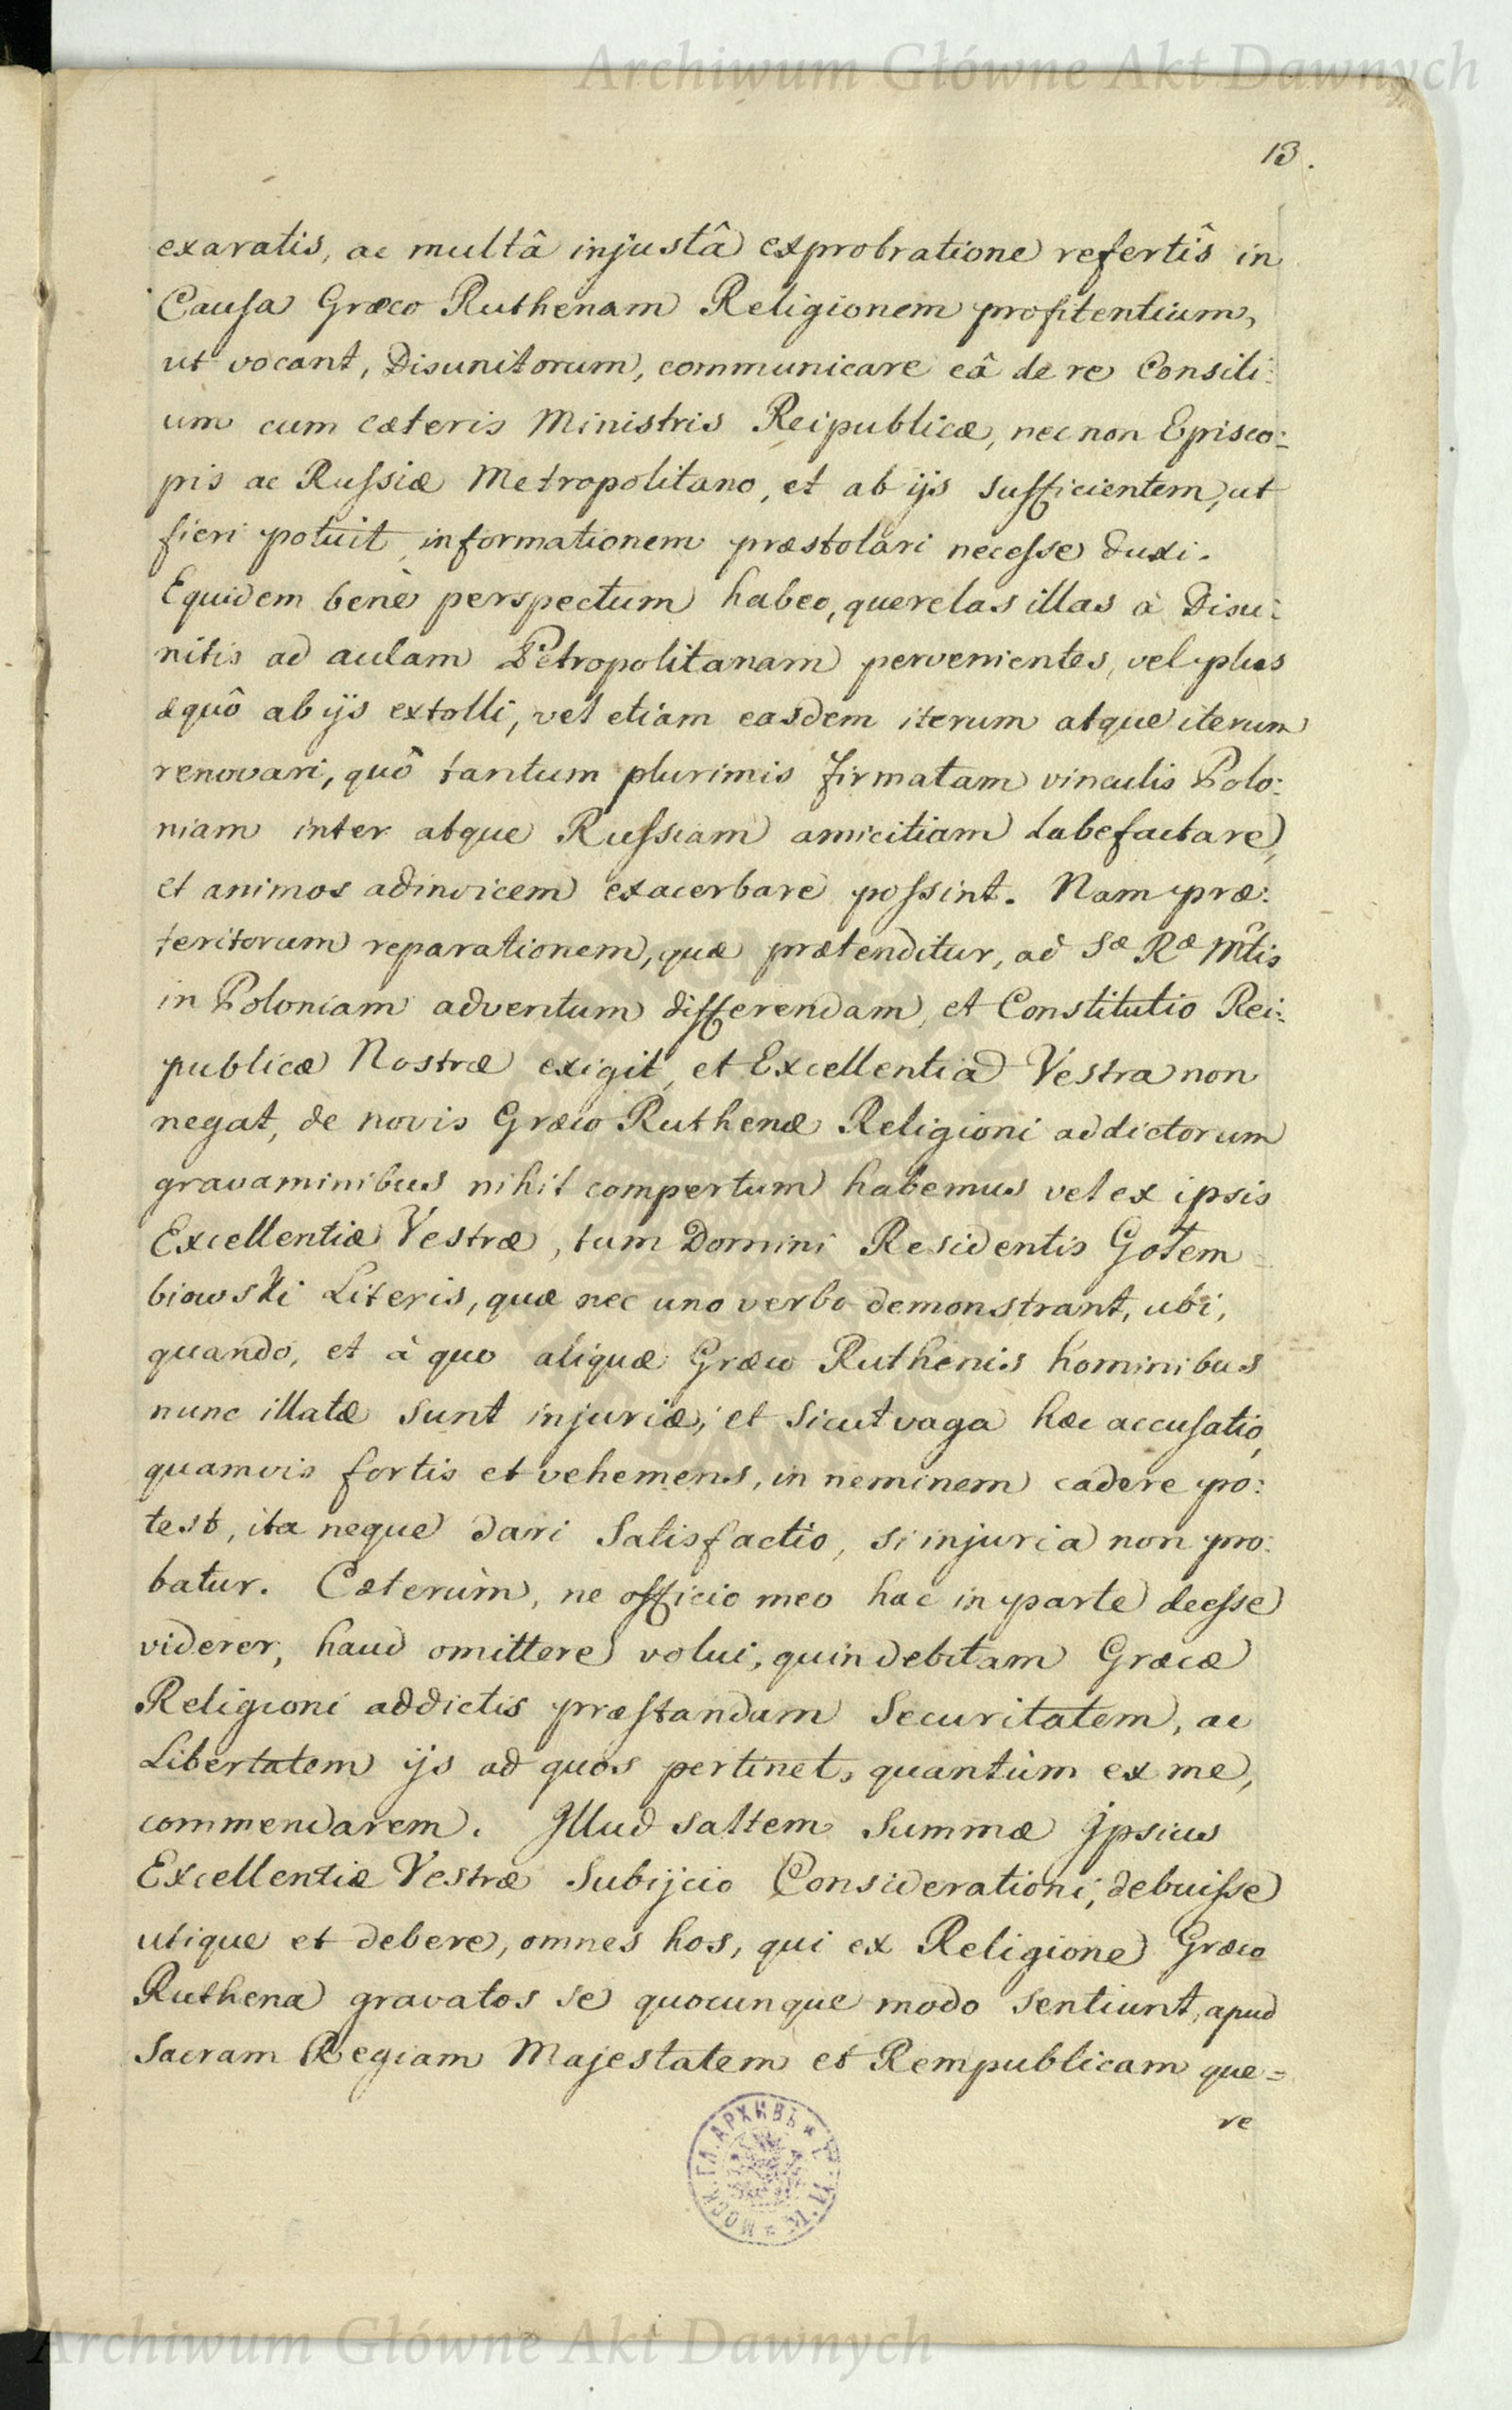 Archiwum Główne Akt Dawnych
13.
exaratis, ac multâ injustâ exprobratione refertis in
Causa Græco Ruthenam Religionem profitentium,
ut vocant, Disunitorum, communicare eâ de re Consili:
um cum cæteris Ministris Reipublicæ, nec non Episco:
pis ac Russiæ Metropolitano, et ab ijs sufficientem, ut
fieri potuit, informationem præstolari necesse duxi.
Equidem benè perspectum habeo, querelas illas à Disu:
nitis ad aulam Petropolitanam pervenientes, vel plus
æquô ab ijs extolli, vel etiam easdem iterum atque iterum
renovari, quô tantum plurimis firmatam vinculis Polo:
niam inter atque Russiam amicitiam labefactare,
et animos adinvicem exacerbare possint. Nam præ:
teritorum reparationem, quæ prætenditur, ad Sæ Ræ Mtis
in Poloniam adventum differendam, et Constitutio Rei:
publicæ Nostræ exigit, et Excellentia Vestra non
negat, de novis Græco Ruthenæ Religioni addictorum
gravaminibus nihil compertum habemus vel ex ipsis
Excellentiæ Vestræ, tum Domini Residentis Gołem=
biowski Literis, quæ nec uno verbo demonstrant, ubi,
quando, et à quo aliquæ Græco Ruthenis hominibus
nunc illatæ sunt injuriæ; et sicut vaga hæc accusatio,
quamvis fortis et vehemens, in neminem cadere po:
test, ita neque dari Satisfactio, si injuria non pro:
batur. Cæterùm, ne officio meo hac in parte deesse
viderer, haud omittere volui, quin debitam Græcæ
Religioni addictis præstandam Securitatem, ac
Libertatem ijs ad quos pertinet, quantùm ex me,
commendarem. Illud saltem Summæ Ipsius
Excellentiæ Vestræ Subijcio Considerationi, debuisse
utique et debere, omnes hos, qui ex Religione Græco
Ruthena gravatos se quocunque modo sentiunt, apud
Sacram Regiam Majestatem et Rempublicam que=
re
МОСК. ГЛ. АРХИВЪ
Archiwum Główne Akt Dawnych